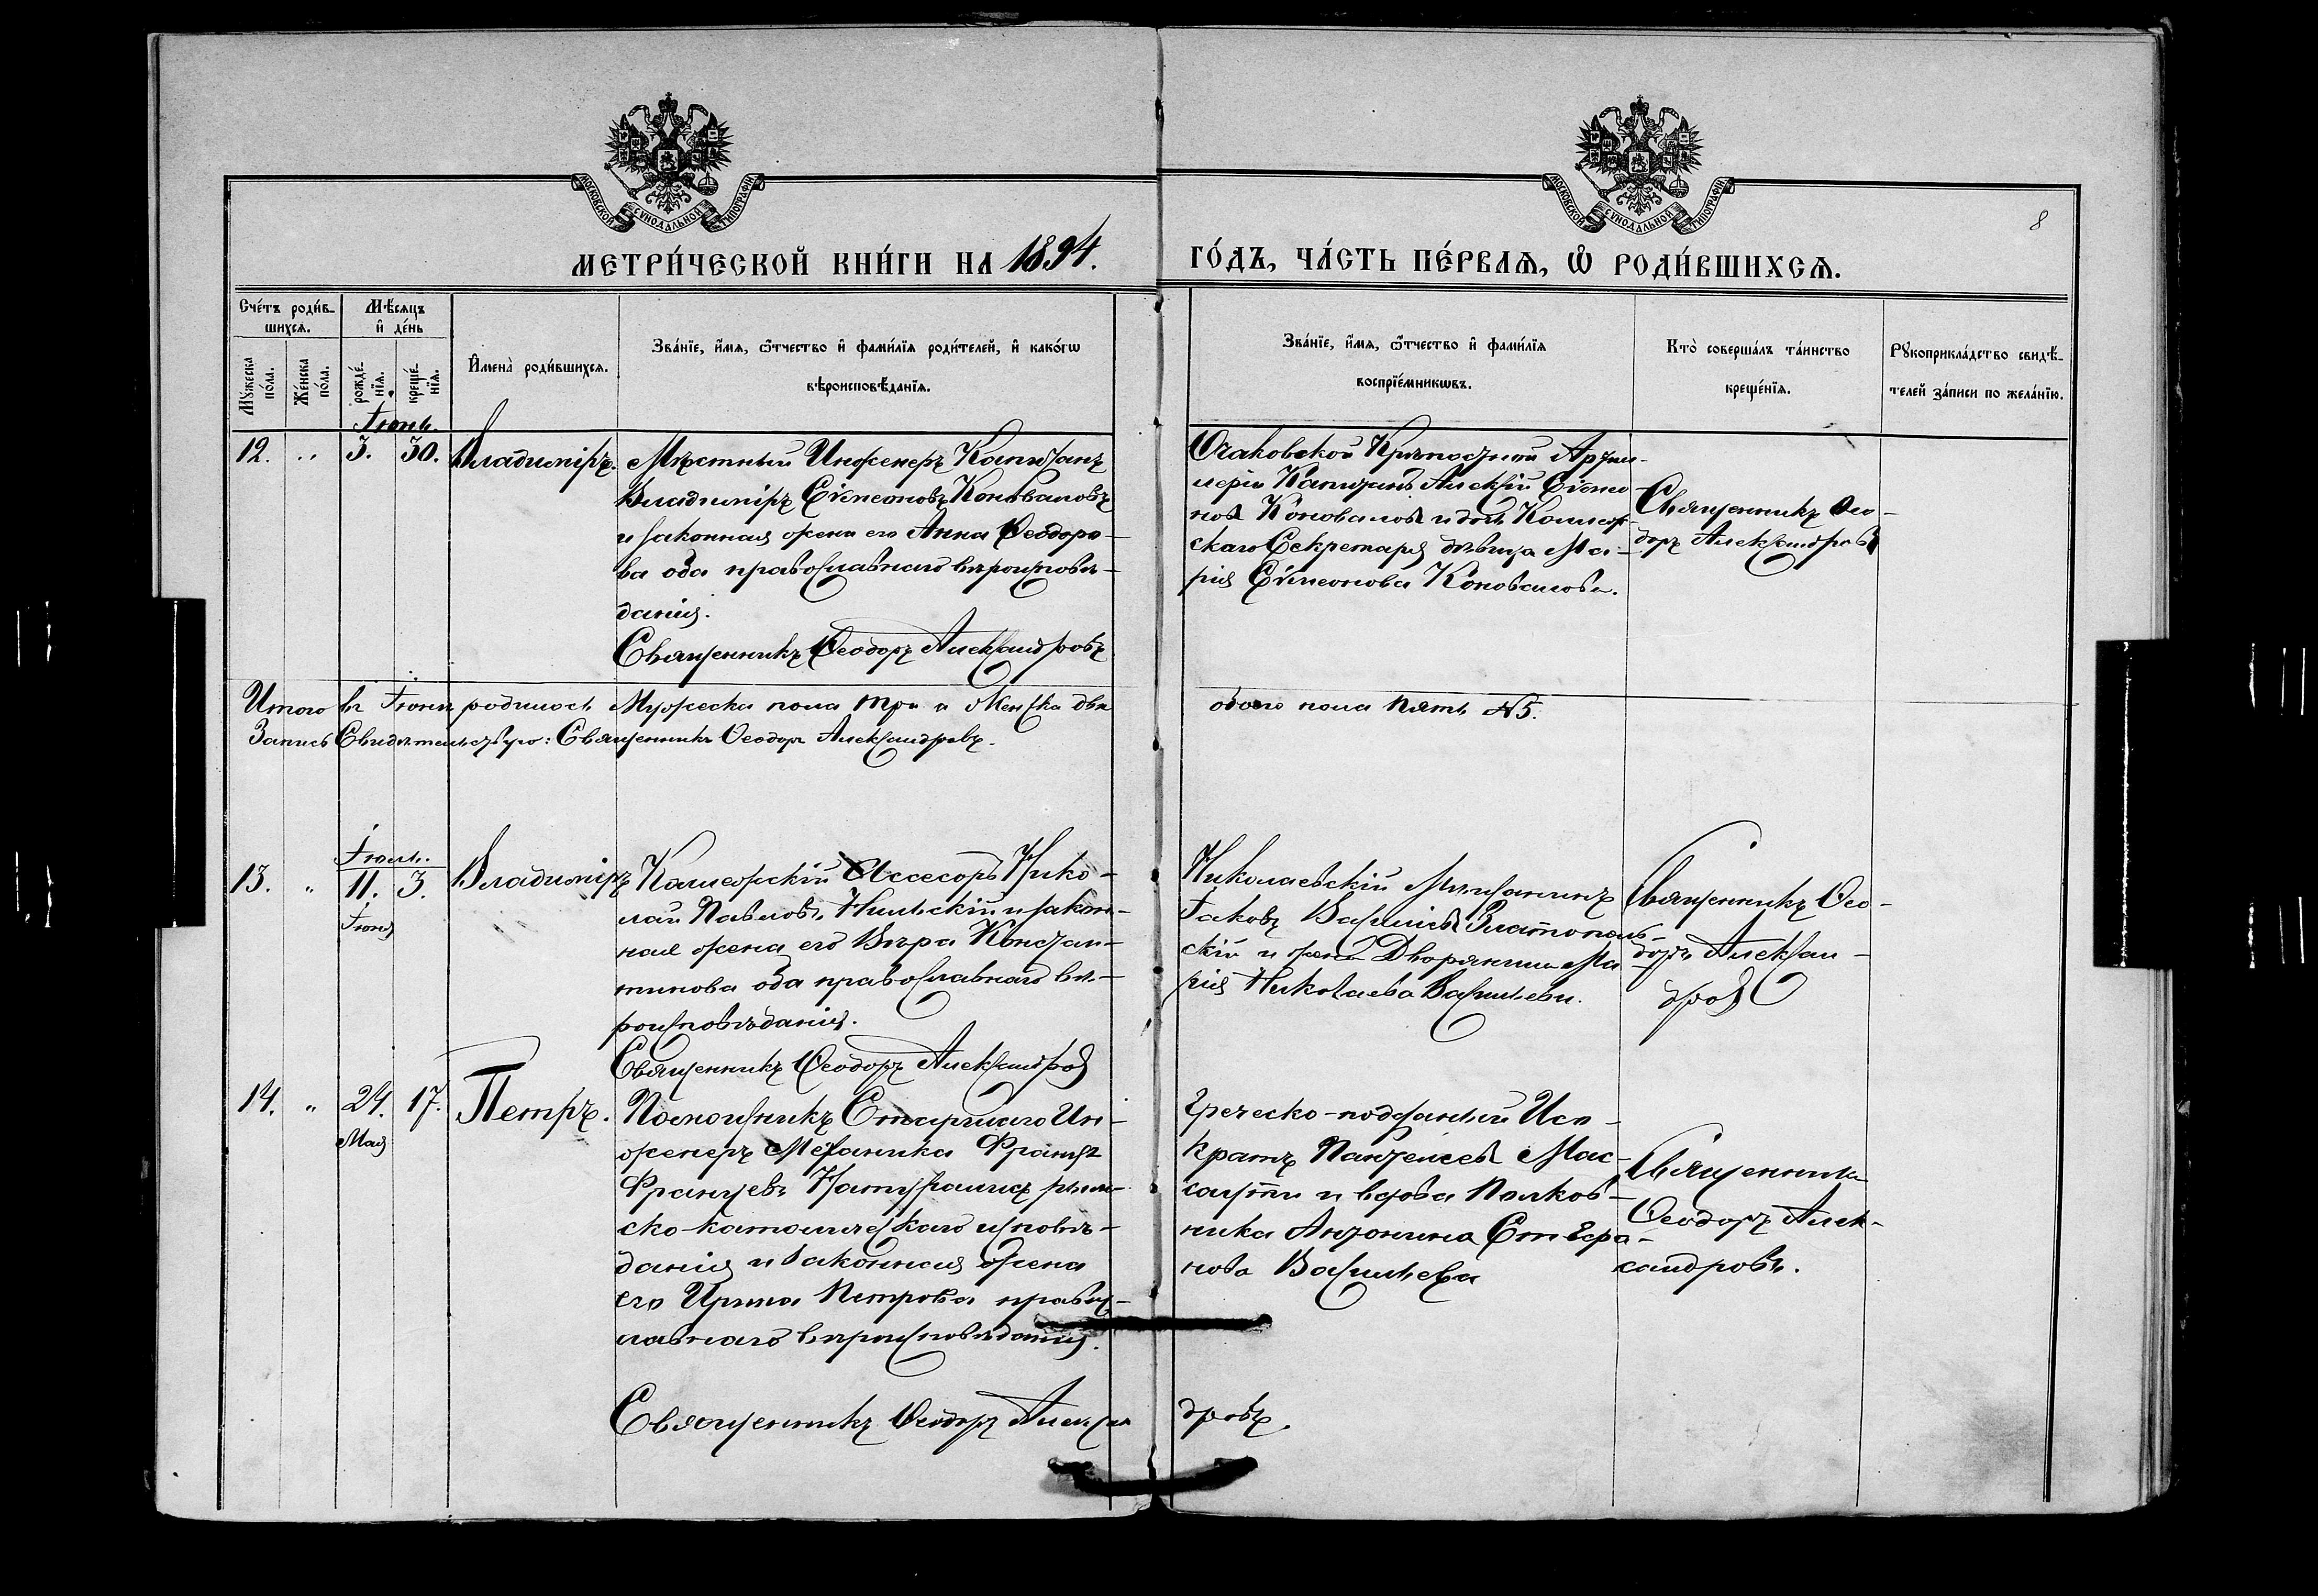 МОСКОВСКОЙ СѴНОДАЛЬНОЙ ТИПОГРАФІИ
МОСКОВСКОЙ СѴНОДАЛЬНОЙ ТИПОГРАФІИ
8
МЕТРИ́ЧЕСКОЙ КНИ́ГИ НА 1894.
ГО́ДЪ, ЧА́СТЬ ПЕ́РВАѦ, Ѡ РОДИ́ВШИХСѦ.
Сче́тъ роди́в-
шихсѧ.
Мꙋжеска по́ла.
Же́нска по́ла.
Мѣ́сѧцъ
и҆ де́нь
рожде́-
нїѧ.
креще́-
нїѧ.
И҆мена̀ роди́вшихсѧ.
Зва́нїе, и҆́мѧ, ѻ҆́тчество и҆ фами́лїѧ роди́телей, и҆ како́гѡ
вѣроисповѣ́данїѧ.
Зва́нїе, и҆́мѧ, ѻ҆́тчество и҆ фами́лїѧ
воспрїе́мникѡвъ.
Кто̀ соверша́лъ та́инство
креще́нїѧ.
Рꙋкоприкла́дство свидѣ́-
телей за́писи по жела́нїю.
Іюнь.
12. „ 3. 30. Владиміръ.
Мѣстный Инженеръ Капитанъ
Владиміръ Сѵмеоновъ Коноваловъ
и законная жена его Анна Ѳеодоро-
ва оба православнаго вѣроисповѣ-
данія.
Священникъ Ѳеодоръ Александровъ
Очаковской Крѣпостной Артил-
леріи Капитанъ Алексій Сѵмео-
новъ Коноваловъ и дочь Коллеж-
скаго Секретаря дѣвица Ма-
рія Сѵмеонова Коновалова.
Священникъ Ѳео-
доръ Александровъ
Итого въ Іюнѣ родилось Мужеска пола три и Женска два
обоего пола пять №5.
Запись Свидѣтельствую: Священникъ Ѳеодоръ Александровъ.
Іюль.
13. „ 11. 3. Владиміръ
Іюня
Коллежскій Ассесоръ Нико-
лай Павловъ Нильскій и закон-
ная жена его Вѣра Констан-
тинова оба православнаго вѣ-
роисповѣданія.
Священникъ Ѳеодоръ Александровъ
Николаевскій Мѣщанинъ
Іаковъ Васильевъ Златополь-
скій и жена Дворянина Ма-
рія Николаева Васильева.
Священникъ Ѳео-
доръ Алексан-
дровъ
14. „ 24. 17. Петръ.
Мая
Помощникъ Старшаго Ин-
женеръ Механика Францъ
Францевъ рим-
ско-католическаго исповѣ-
данія и законная жена
его Ирина Петрова правос-
лавнаго вѣроисповѣданія.
Греческо-подданный Исо-
кратъ Пантелеевъ Мас-
и вдова Полков-
ника Антонина Стефа-
нова Васильева
Священникъ
Ѳеодоръ Алек-
сандровъ.
Священникъ Ѳеодоръ Алексан
дровъ.